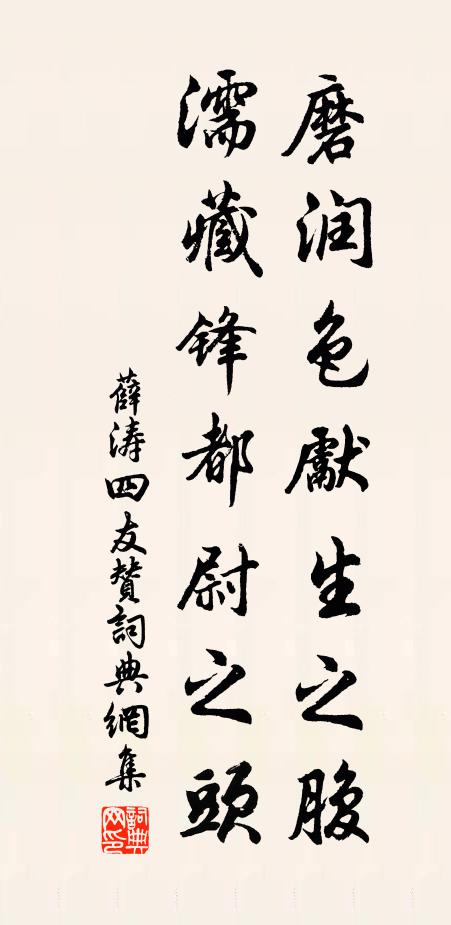 磨润色獻生之腹
濡藏锋都尉之頭
薛涛四友赞詞典網集
詞典网印